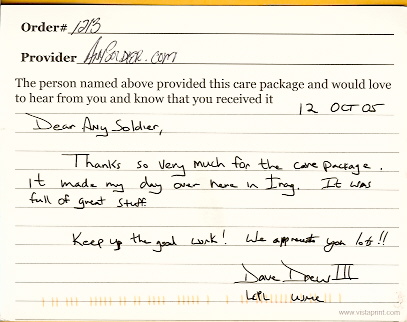 Order# 1213
Provider AnySoldier.com
The person named above provided this care package and would love
to hear from you and know that you received it
12 OCT 05
Dear Any Soldier,
Thanks so very much for the care package.
It made my day over here in Iraq. It was
full of great stuff.
Keep up the good work! We appreciate you lots!!
Dave Drew III
LCPL USMC
www.vistaprint.com